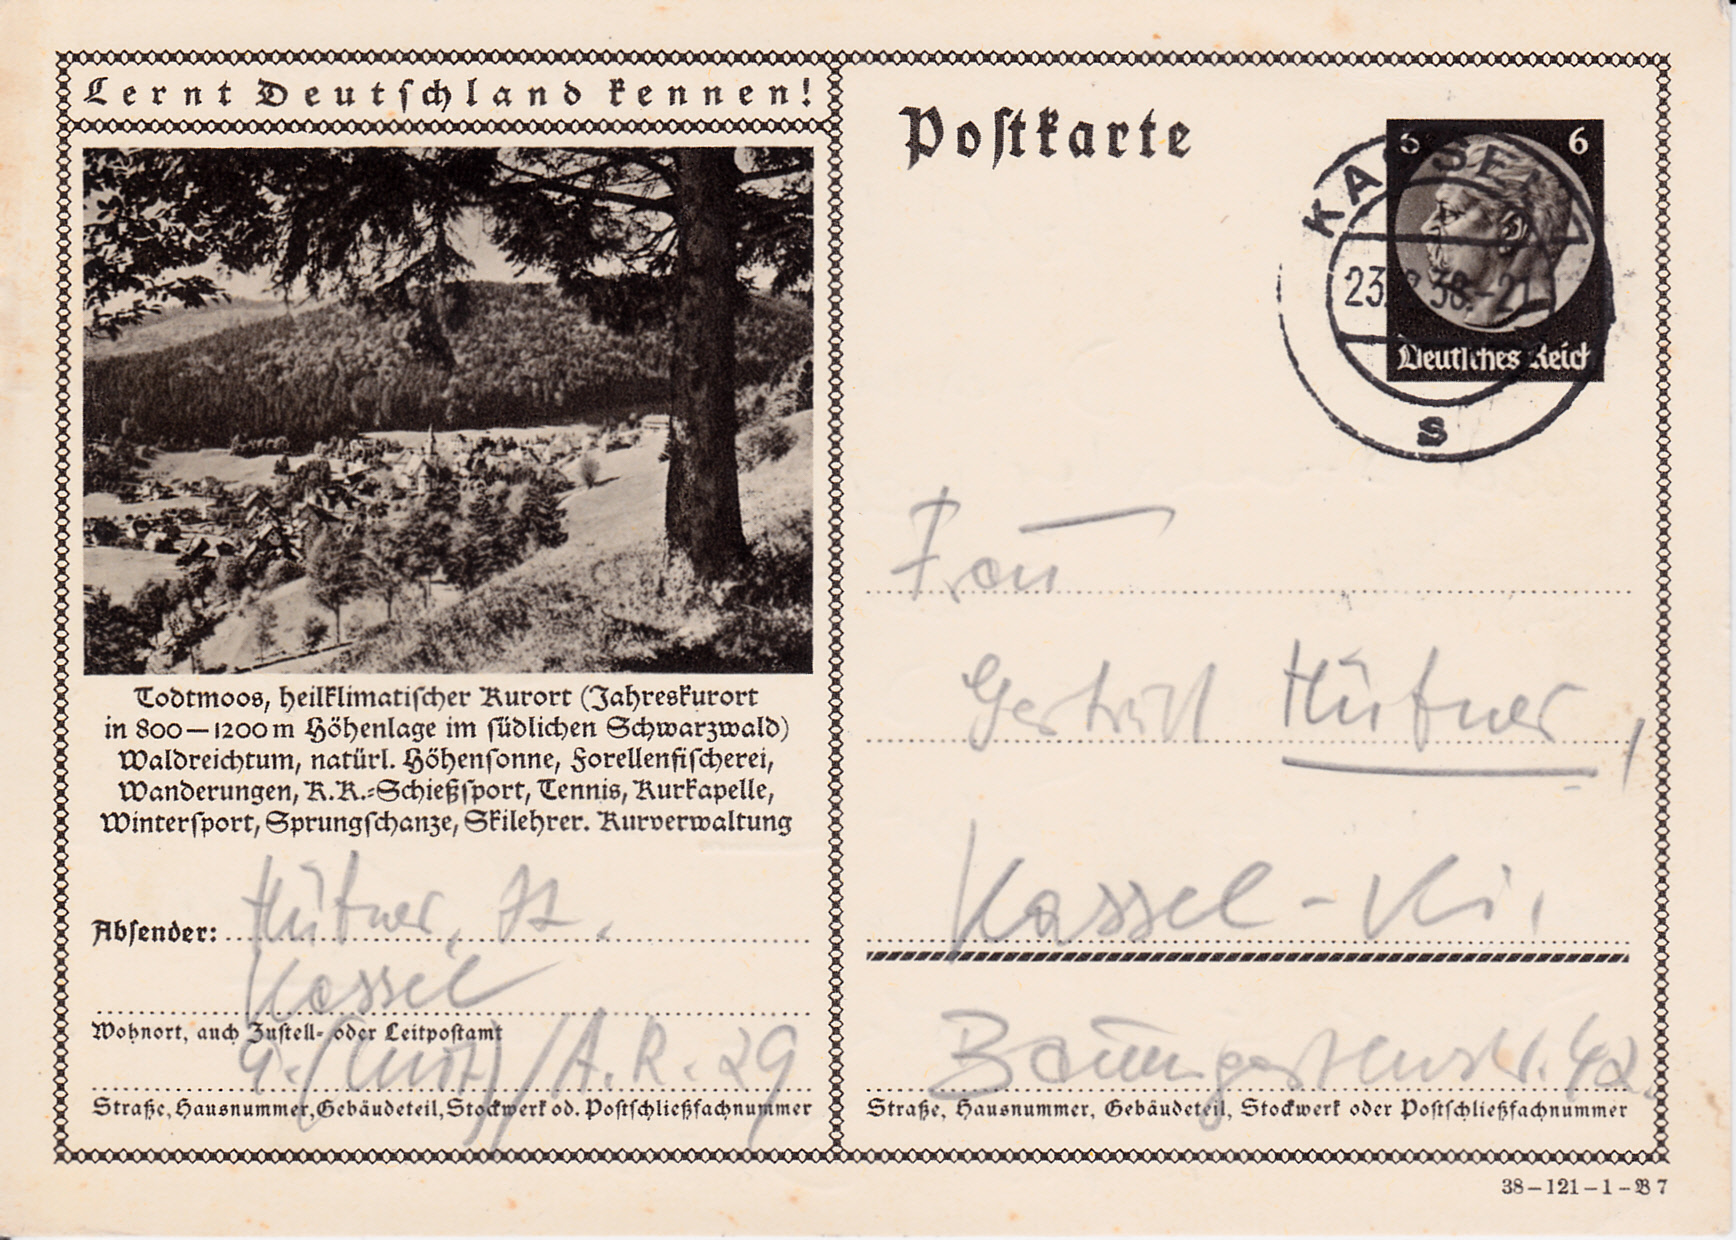 Lernt Deutschland kennen!
Todtmoos, heilklimatischer Kurort (Jahreskurort
in 800—1200 m Höhenlage im südlichen Schwarzwald)
Waldreichtum, natürl. Höhensonne, Forellenfischerei,
Wanderungen, K.K.-Schießsport, Tennis, Kurkapelle,
Wintersport, Sprungschanze, Skilehrer. Kurverwaltung
Absender: Hütner,
Kassel
Wohnort, auch Zustell- oder Leitpostamt
9. /A.R. 29
Straße, Hausnummer, Gebäudeteil, Stockwerk od. Postschließfachnummer
Postkarte
6 6
Deutsches Reich
KASSEL 7
23. 38.-21
s
Frau
Gertrud Hütner,
Kassel-Ki.
Baumgartenstr. 42.
Straße, Hausnummer, Gebäudeteil, Stockwerk oder Postschließfachnummer
38-121-1-B 7